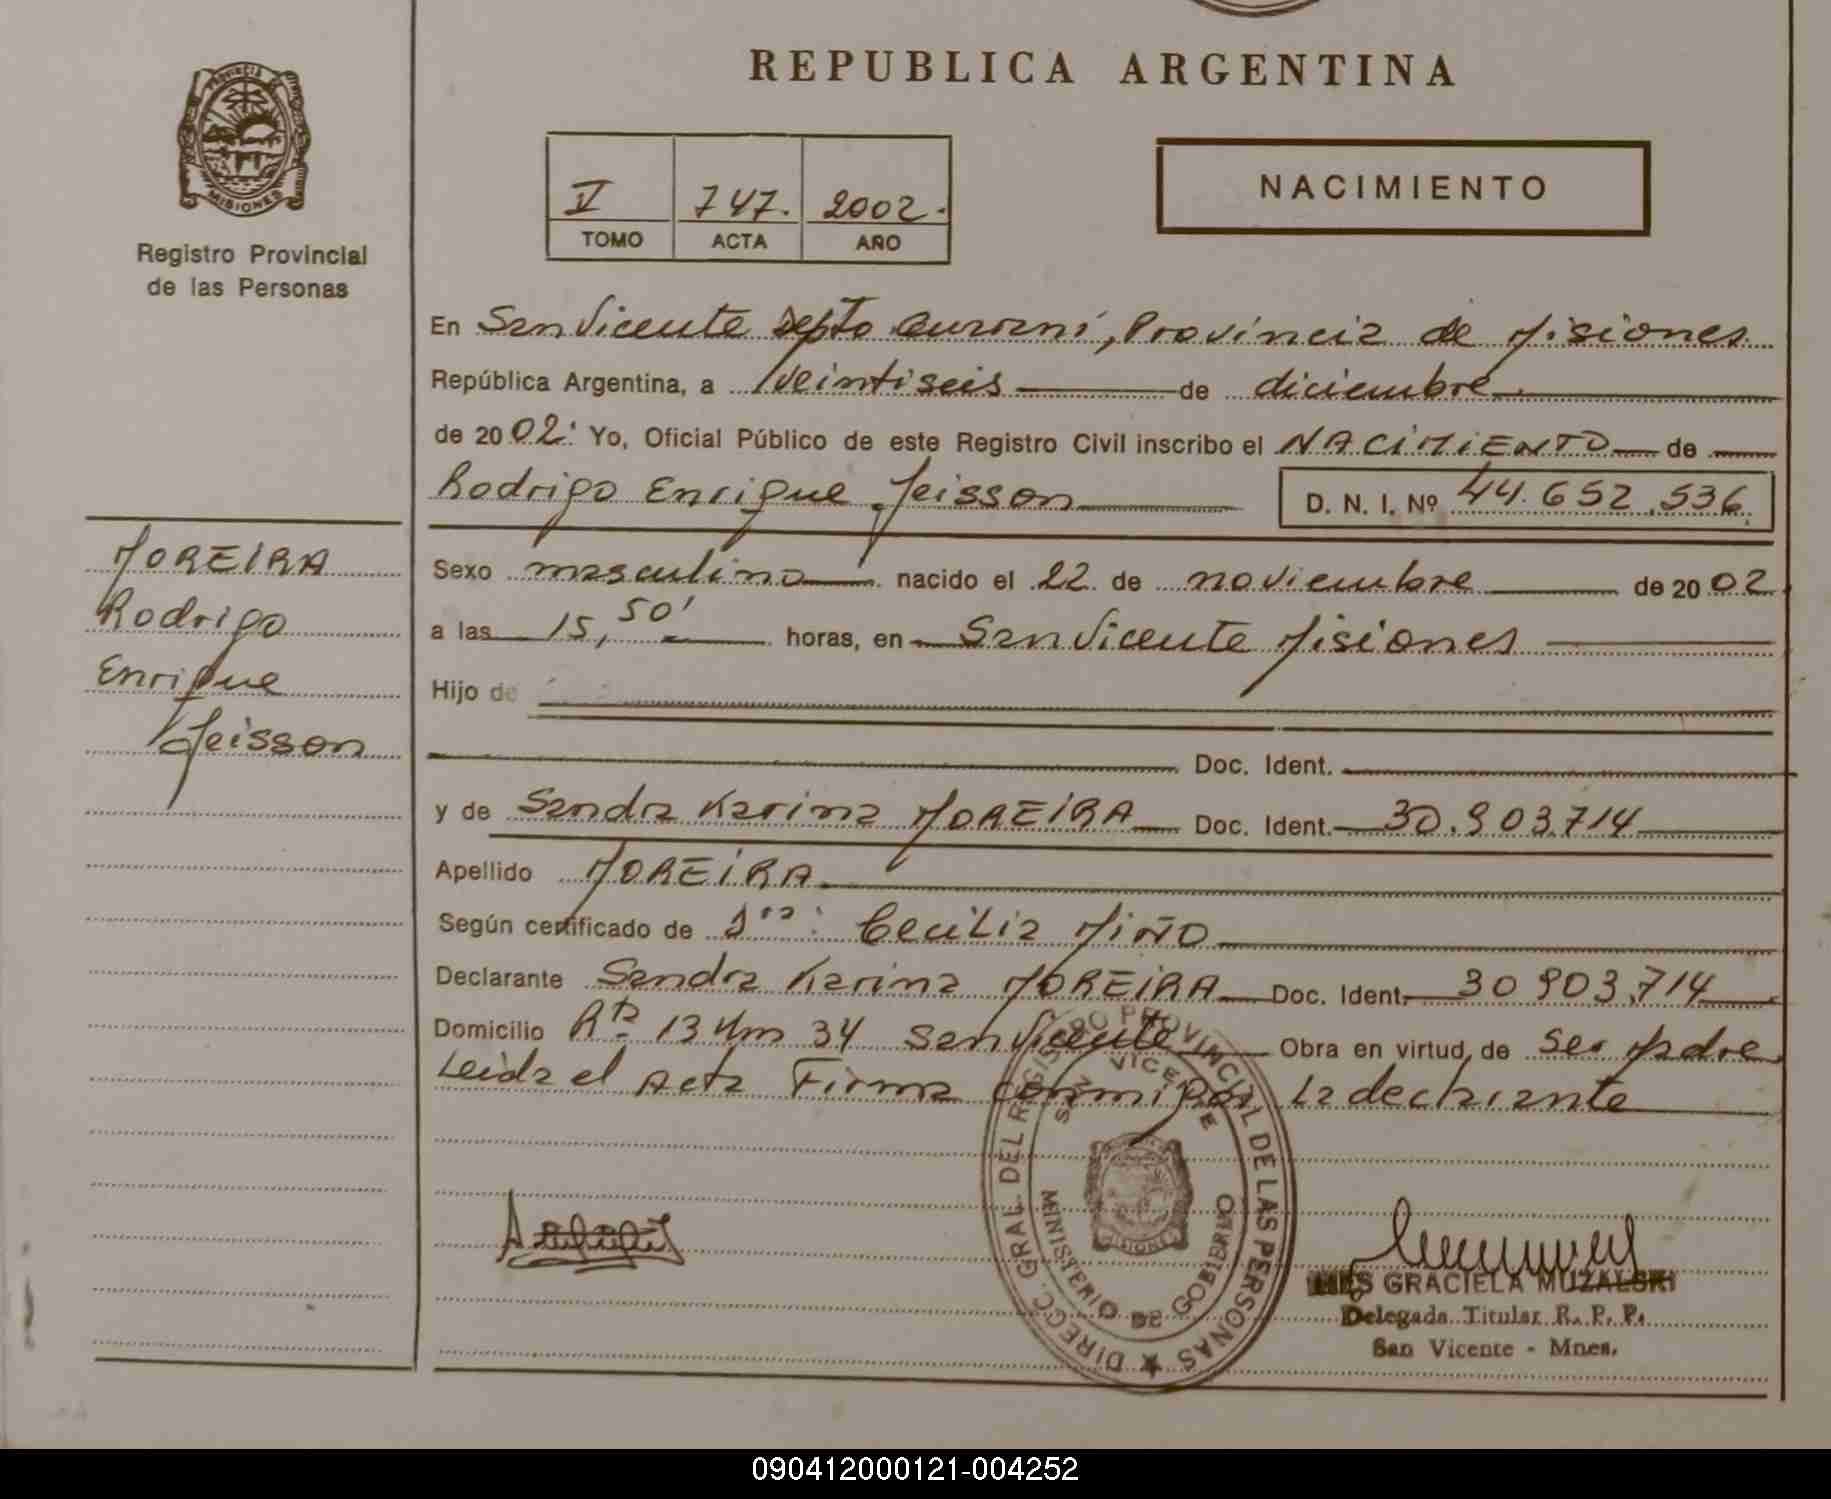 REPUBLICA ARGENTINA
PROVINCIA DE MISIONES
Registro Provincial
de las Personas
V 747. 2002.
TOMO ACTA AÑO
NACIMIENTO
MOREIRA
Rodrigo
Enrique
Jeisson
En San Vicente Depto Guarani, Provincia de Misiones
República Argentina, a Veintiseis de diciembre
de 2002. Yo, Oficial Público de este Registro Civil inscribo el NACIMIENTO de
Rodrigo Enrique Jeisson D. N. I. Nº 44.652.536
Sexo masculino nacido el 22 de noviembre de 2002
a las 15,50' horas, en San Vicente Misiones
Hijo de
Doc. Ident.
y de Sandra Karina MOREIRA Doc. Ident. 30.903.714
Apellido MOREIRA
Según certificado de Dra: Cecilia Miño
Declarante Sandra Karina MOREIRA Doc. Ident. 30 903.714
Domicilio Rta 13 Km 34 San Vicente Obra en virtud de Ser Madre
Leida el Acta Firma conmigo La declarante
DIRECC. GRAL. DEL REGISTRO PROVINCIAL DE LAS PERSONAS
SAN VICENTE
MINISTERIO DE GOBIERNO
MISIONES
INES GRACIELA MUZALSKI
Delegada Titular R. P. P.
San Vicente - Mnes.
090412000121-004252